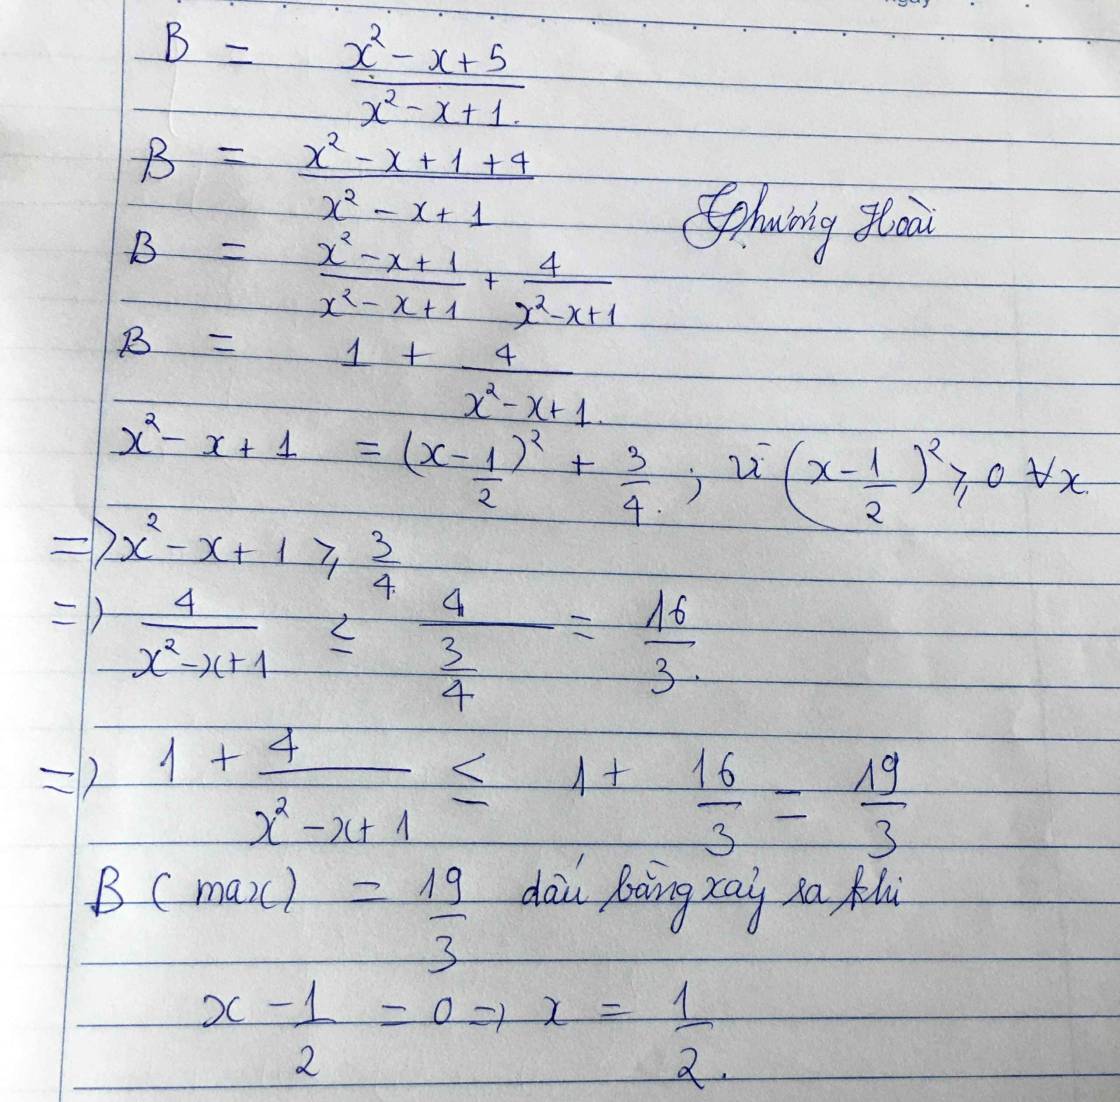 B = \frac{x^2 - x + 5}{x^2 - x + 1}.
B = \frac{x^2 - x + 1 + 4}{x^2 - x + 1}
Phương Hoài
B = \frac{x^2 - x + 1}{x^2 - x + 1} + \frac{4}{x^2 - x + 1}
B = 1 + \frac{4}{x^2 - x + 1}.
x^2 - x + 1 = (x - \frac{1}{2})^2 + \frac{3}{4}. ; vì (x - \frac{1}{2})^2 ≥ 0 ∀x.
=> x^2 - x + 1 ≥ \frac{3}{4}
=> \frac{4}{x^2 - x + 1} ≤ \frac{4}{\frac{3}{4}} = \frac{16}{3}.
=> 1 + \frac{4}{x^2 - x + 1} ≤ 1 + \frac{16}{3} = \frac{19}{3}
B (max) = \frac{19}{3} dấu bằng xảy ra khi
x - \frac{1}{2} = 0 => x = \frac{1}{2}.